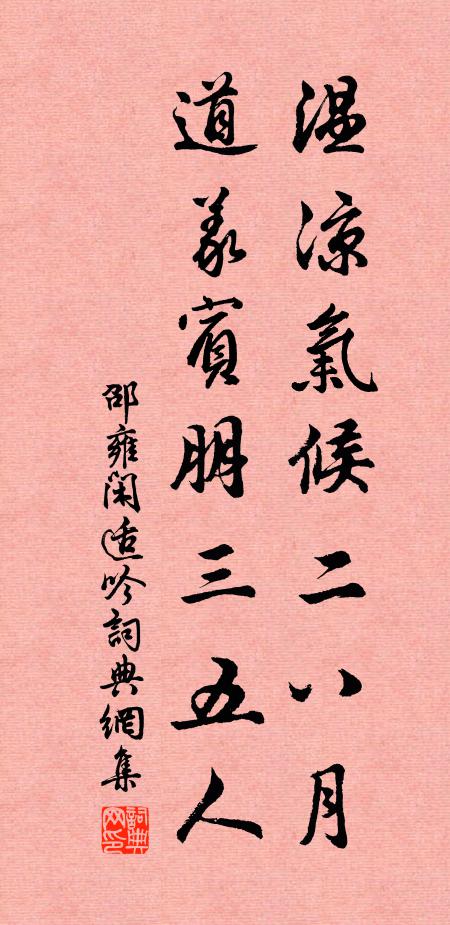 温涼氣候二八月
道義賓朋三五人
邵雍閑適吟詞典網集
詞典网印